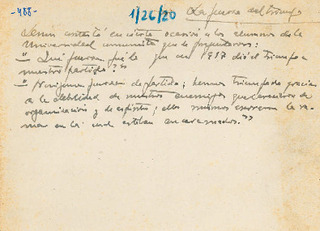 -488-
1/26/20
La fuerza del triunfo
Lenin contestó en cierta ocasión a los alumnos de la
Universidad comunista que le preguntaron:
"¿Qué fuerza fué la que en 1917 dió el triunfo a
nuestro partido?"
"Ninguna fuerza de partido; hemos triunfado gracias
a la debilidad de nuestros enemigos que carecieron de
organización y de espíritu; ellos mismos cortaron la ra-
ma en la cual estaban encaramados."